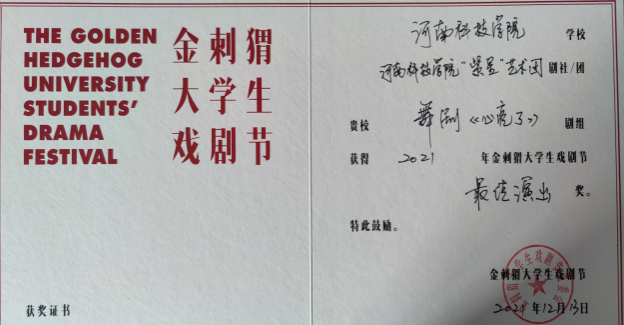 THE GOLDEN
HEDGEHOG
UNIVERSITY
STUDENTS'
DRAMA
FESTIVAL
金刺猬
大学生
戏剧节
获奖证书
河南科技学院 学校
河南科技学院"紫星"艺术团 剧社/团
贵校 舞剧《心亮了》 剧组
获得 2021 年金刺猬大学生戏剧节
最佳演出 奖。
特此鼓励。
金刺猬大学生戏剧节
2021年12月13日